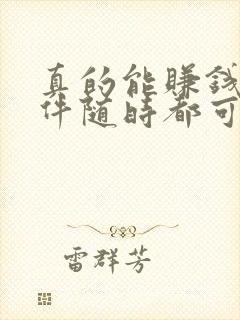 真的能賺錢
件随時都可
雷群芳